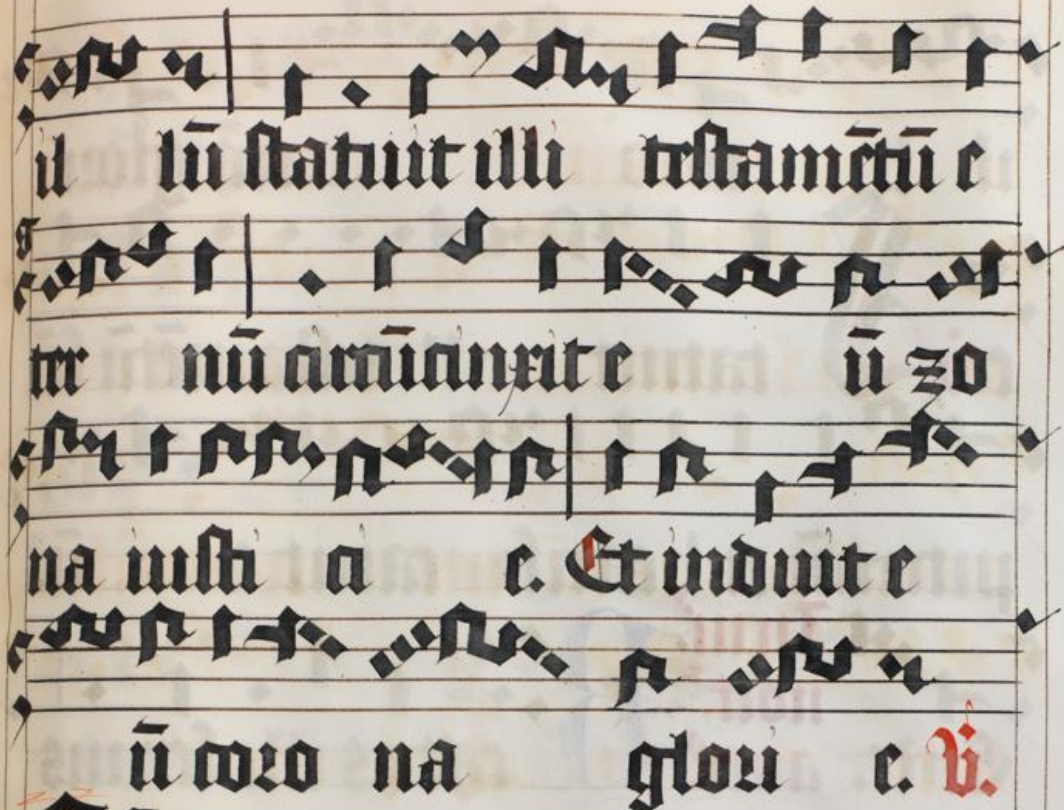 il lū statuit illi testamētū e
ter nū circūcinxit e ū zo
na iusti ci e. Et induit e
ū coro na glori e. V.